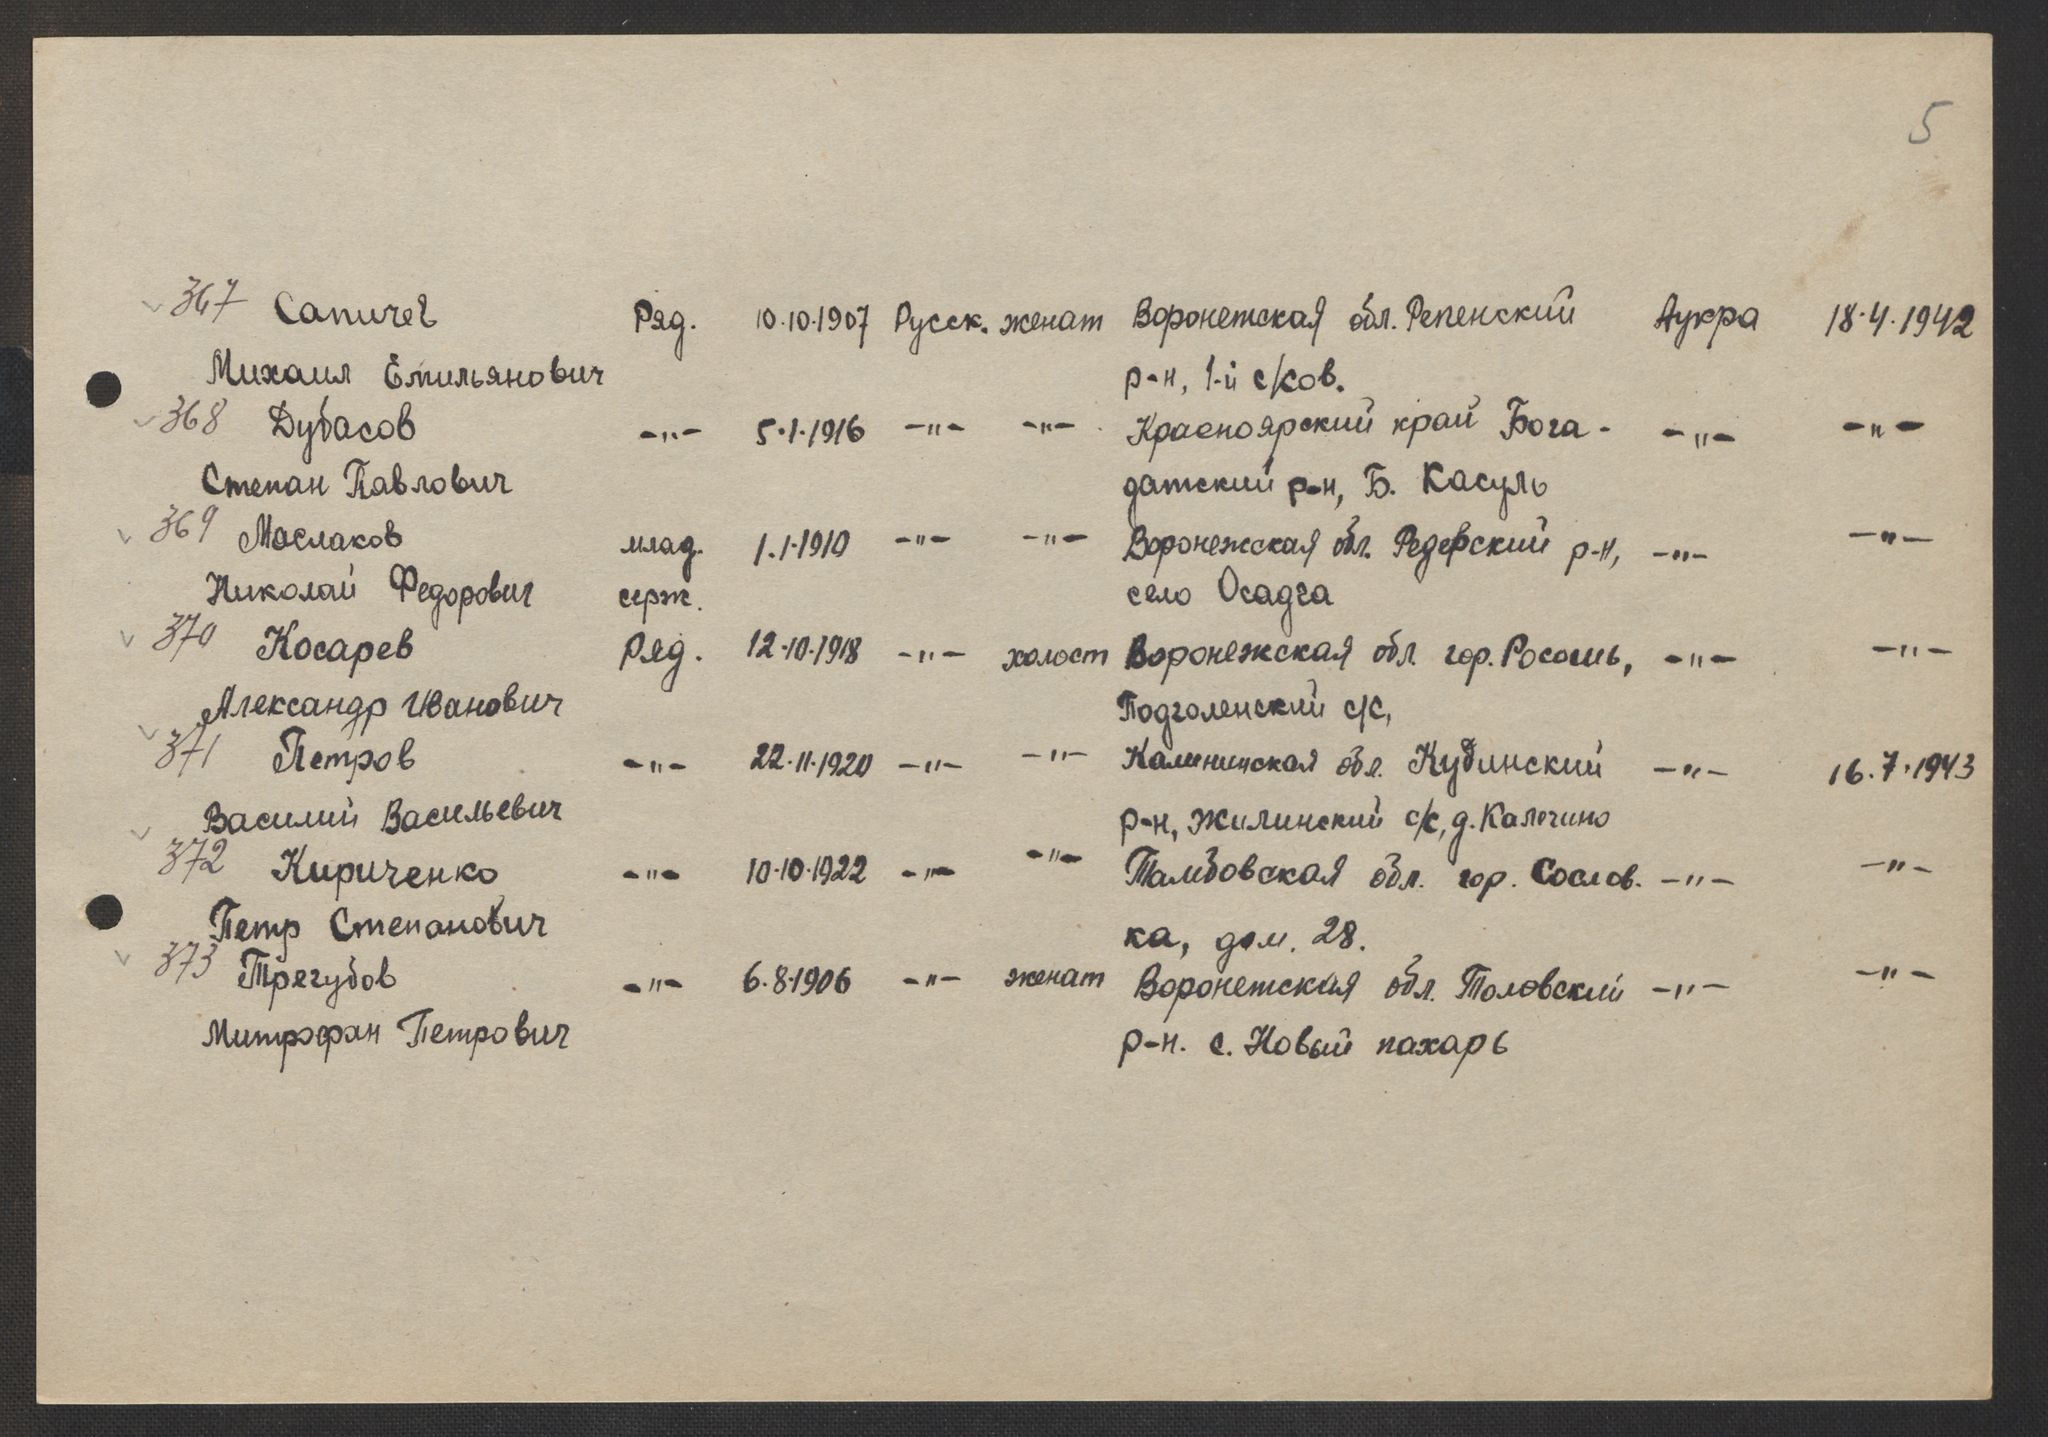 5
367 Сапичев Ряд. 10.10.1907 Русск. женат Воронежская обл. Репенский Аукра 18.4.1942
Михаил Емильянович р-н, 1-й с/ков.
368 Дубасов -"- 5.1.1916 -"- -"- Красноярский край Бога- -"- -"-
Степан Павлович датский р-н, Б. Касуль
369 Маслаков млад. 1.1.1910 -"- -"- Воронежская обл. р-н, -"- -"-
Николай Федорович серж. село Осадга
370 Косарев Ряд. 12.10.1918 -"- холост Воронежская обл. гор. Росошь, -"- -"-
Александр Иванович Подголенский с/с,
371 Петров -"- 22.11.1920 -"- -"- Калининская обл. Кубинский -"- 16.7.1943
Василий Васильевич р-н, Жилинский с/с, д. Калечино
372 Кириченко -"- 10.10.1922 -"- -"- Тамбовская обл. гор. Сослов. -"- -"-
Петр Степанович ка, дом. 28.
373 Трегубов -"- 6.8.1906 -"- женат Воронежская обл. Толовский -"- -"-
Митрофан Петрович р-н. с. Новый пахарь